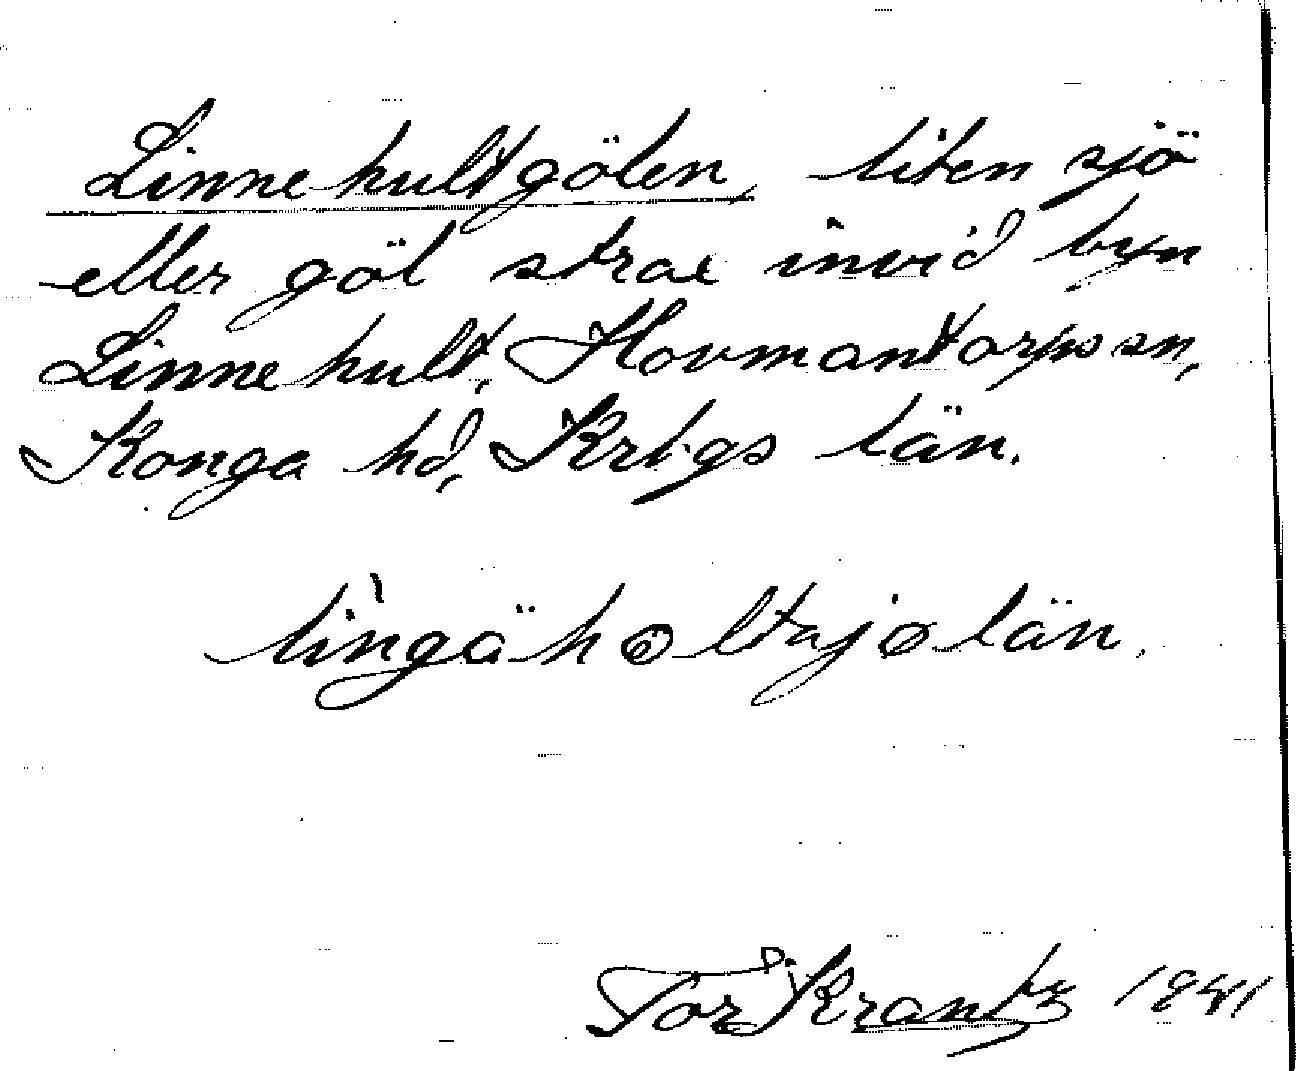 Linnehultgölen, liten sjö
eller göl strax invid byn
Linnehult, Hovmantorps sn,
Konga hd, Krbgs län.
Tor Krantz 1941